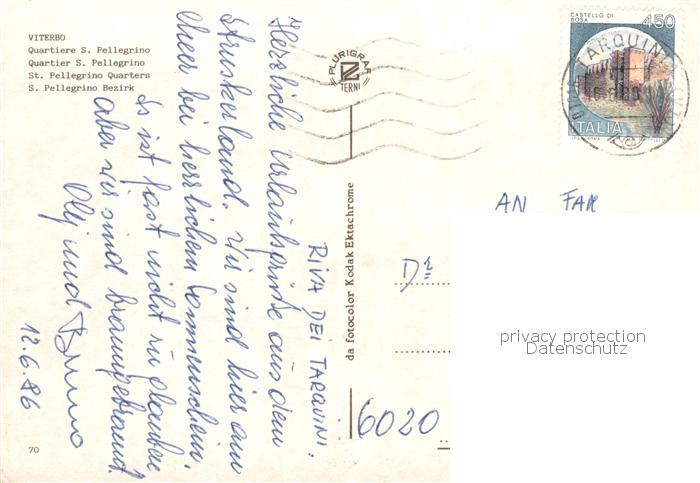 VITERBO
Quartiere S. Pellegrino
Quartier S. Pellegrino
St. Pellegrino Quarters
S. Pellegrino Bezirk
PLURIGRAF
TERNI
CASTELLO DI
ROSA
450
ITALIA
TARQUIN
RIVA DEI TARQUINI.
Herzliche Urlaubsgrüße aus dem
Etruskerland. Wir sind hier am
Meer bei herrlichem Sonnenschein.
Es ist fast nicht zu glauben
aber wir sind braungebrannt.
und Bruno
12.6.86
da fotocolor Kodak Ektachrome
AN FAM
Dr
6020
privacy protection
Datenschutz
70